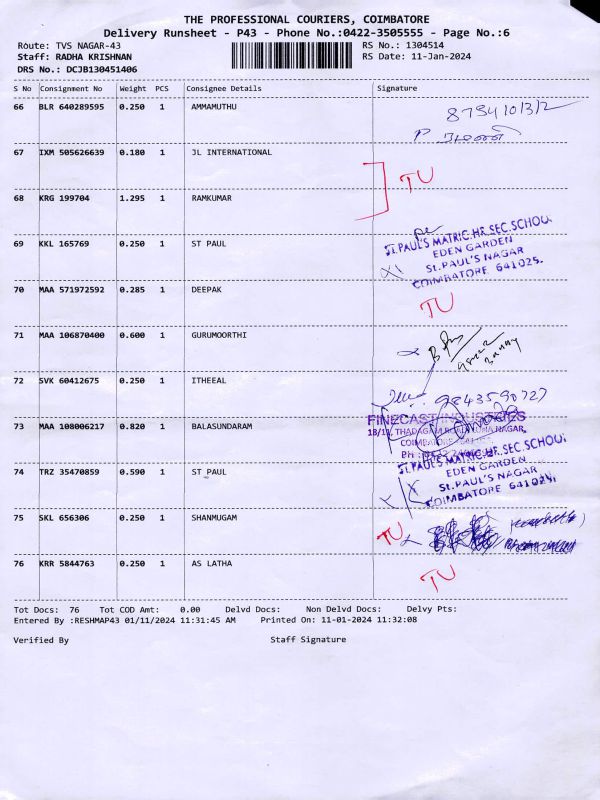 THE PROFESSIONAL COURIERS, COIMBATORE
Delivery Runsheet - P43 - Phone No.:0422-3505555 - Page No.:6
Route: TVS NAGAR-43 RS No.: 1304514
Staff: RADHA KRISHNAN RS Date: 11-Jan-2024
DRS No.: DCJB130451406
S No Consignment No Weight PCS Consignee Details Signature
66 BLR 640289595 0.250 1 AMMAMUTHU
67 IXM 505626639 0.180 1 JL INTERNATIONAL
TU
68 KRG 199704 1.295 1 RAMKUMAR
69 KKL 165769 0.250 1 ST PAUL
ST.PAUL'S MATRIC.HR.SEC.SCHOOL
EDEN GARDEN
St.PAUL'S NAGAR
COIMBATORE 641025.
70 MAA 571972592 0.285 1 DEEPAK
TU
71 MAA 106870400 0.600 1 GURUMOORTHI
72 SVK 60412675 0.250 1 ITHEEAL
9843590727
73 MAA 108006217 0.820 1 BALASUNDARAM
FINECAST INDUSTRIES
74 TRZ 35470859 0.590 1 ST PAUL
ST.PAUL'S MATRIC.HR.SEC.SCHOOL
EDEN GARDEN
St.PAUL'S NAGAR
COIMBATORE 641025.
75 SKL 656306 0.250 1 SHANMUGAM
TU
76 KRR 5844763 0.250 1 AS LATHA
TU
Tot Docs: 76 Tot COD Amt: 0.00 Delvd Docs: Non Delvd Docs: Delvy Pts:
Entered By :RESHMAP43 01/11/2024 11:31:45 AM Printed On: 11-01-2024 11:32:08
Verified By Staff Signature